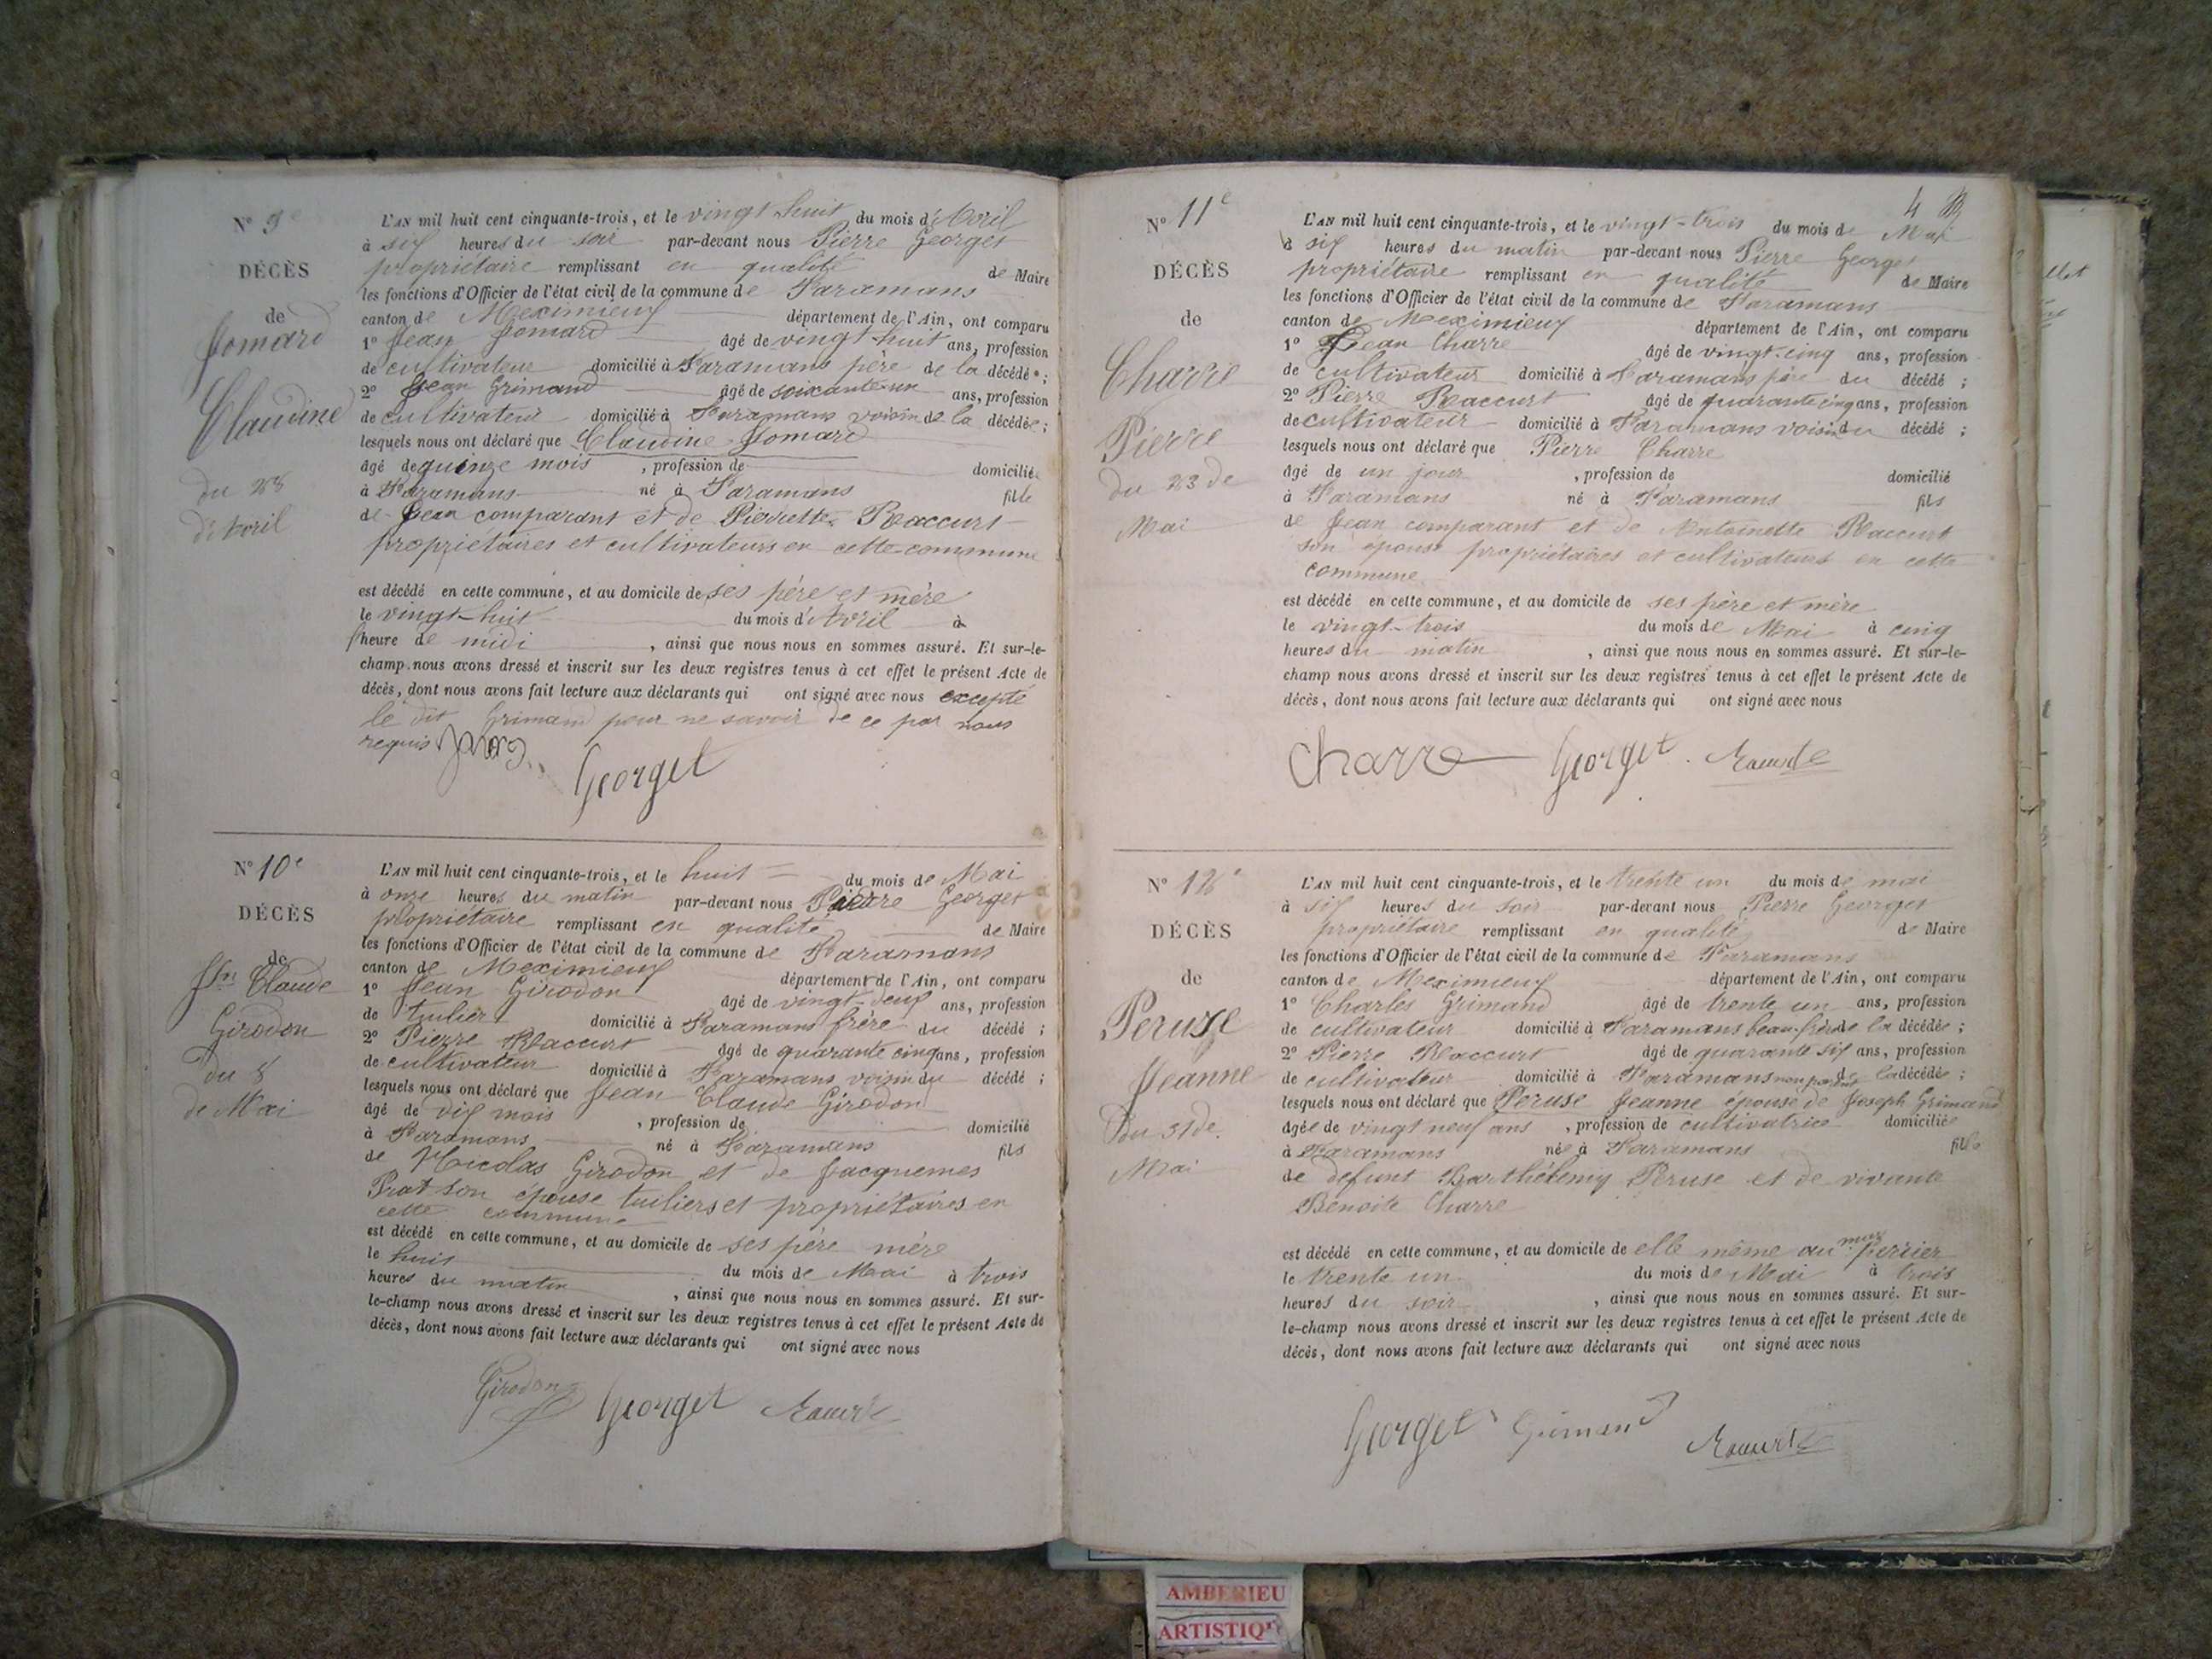 N° 9e
DÉCÈS
de
Jomard
Claudine
du 28
d'Avril
L'AN mil huit cent cinquante-trois, et le vingt huit du mois d'Avril
à six heures du soir par-devant nous Pierre Georget
propriétaire remplissant en qualité de Maire
les fonctions d'Officier de l'état civil de la commune de Faramans
canton de Meximieux département de l'Ain, ont comparu
1° Jean Jomard âgé de vingt-huit ans, profession
de cultivateur domicilié à Faramans père de la décédée;
2° Jean Grimand âgé de soixante un ans, profession
de cultivateur domicilié à Faramans voisin de la décédée;
lesquels nous ont déclaré que Claudine Jomard
âgé de quinze mois, profession de domiciliée
à Faramans né à Faramans fille
de Jean comparant et de Pierrette Raccurt
propriétaires et cultivateurs en cette commune
est décédé en cette commune, et au domicile de ses père et mère
le vingt-huit du mois d'Avril à
heure de midi, ainsi que nous nous en sommes assuré. Et sur-le-
champ nous avons dressé et inscrit sur les deux registres tenus à cet effet le présent Acte de
décès, dont nous avons fait lecture aux déclarants qui ont signé avec nous excepté
le dit Grimand pour ne savoir de ce par nous
requis
Georget
N° 10e
DÉCÈS
de
Jn Claude
Girodon
du 8
de Mai
L'AN mil huit cent cinquante-trois, et le huit du mois de Mai
à onze heures du matin par-devant nous Pierre Georget
propriétaire remplissant en qualité de Maire
les fonctions d'Officier de l'état civil de la commune de Faramans
canton de Meximieux département de l'Ain, ont comparu
1° Jean Girodon âgé de vingt-deux ans, profession
de tuilier domicilié à Faramans frère du décédé;
2° Pierre Raccurt âgé de quarante cinq ans, profession
de cultivateur domicilié à Faramans voisin du décédé;
lesquels nous ont déclaré que Jean Claude Girodon
âgé de dix mois, profession de domicilié
à Faramans né à Faramans fils
de Nicolas Girodon et de Jacquemes
Prat son épouse tuiliers et propriétaires en
cette commune
est décédé en cette commune, et au domicile de ses père mère
le huit du mois de Mai à trois
heures du matin, ainsi que nous nous en sommes assuré. Et sur-
le-champ nous avons dressé et inscrit sur les deux registres tenus à cet effet le présent Acte de
décès, dont nous avons fait lecture aux déclarants qui ont signé avec nous
Girodon Georget Raccurt
4
N° 11e
DÉCÈS
de
Charre
Pierre
du 23 de
Mai
L'AN mil huit cent cinquante-trois, et le vingt-trois du mois de Mai
à six heures du matin par-devant nous Pierre Georget
propriétaire remplissant en qualité de Maire
les fonctions d'Officier de l'état civil de la commune de Faramans
canton de Meximieux département de l'Ain, ont comparu
1° Jean Charre âgé de vingt-cinq ans, profession
de cultivateur domicilié à Faramans père du décédé;
2° Pierre Raccurt âgé de quarante cinq ans, profession
de cultivateur domicilié à Faramans voisin du décédé;
lesquels nous ont déclaré que Pierre Charre
âgé de un jour, profession de domicilié
à Faramans né à Faramans fils
de Jean comparant et de Antoinette Raccurt
son épouse propriétaires et cultivateurs en cette
commune
est décédé en cette commune, et au domicile de ses père et mère
le vingt-trois du mois de Mai à cinq
heures du matin, ainsi que nous nous en sommes assuré. Et sur-le-
champ nous avons dressé et inscrit sur les deux registres tenus à cet effet le présent Acte de
décès, dont nous avons fait lecture aux déclarants qui ont signé avec nous
Charre Georget Raccurt
N° 12e
DÉCÈS
de
Peruse
Jeanne
Du 31 de
Mai
L'AN mil huit cent cinquante-trois, et le trente un du mois de mai
à six heures du soir par-devant nous Pierre Georget
propriétaire remplissant en qualité de Maire
les fonctions d'Officier de l'état civil de la commune de Faramans
canton de Meximieux département de l'Ain, ont comparu
1° Charles Grimand âgé de trente un ans, profession
de cultivateur domicilié à Faramans beau-frère de la décédée;
2° Pierre Raccurt âgé de quarante six ans, profession
de cultivateur domicilié à Faramans non parent de la décédée;
lesquels nous ont déclaré que Peruse Jeanne épouse de Joseph Grimand
âgée de vingt neuf ans, profession de cultivatrice domiciliée
à Faramans née à Faramans fille
de defunt Barthélemy Peruse et de vivante
Benoite Charre
est décédé en cette commune, et au domicile de elle même au mas perrier
le trente un du mois de Mai à trois
heures du soir, ainsi que nous nous en sommes assuré. Et sur-
le-champ nous avons dressé et inscrit sur les deux registres tenus à cet effet le présent Acte de
décès, dont nous avons fait lecture aux déclarants qui ont signé avec nous
Georget Grimand Raccurt
AMBERIEU
ARTISTIQ